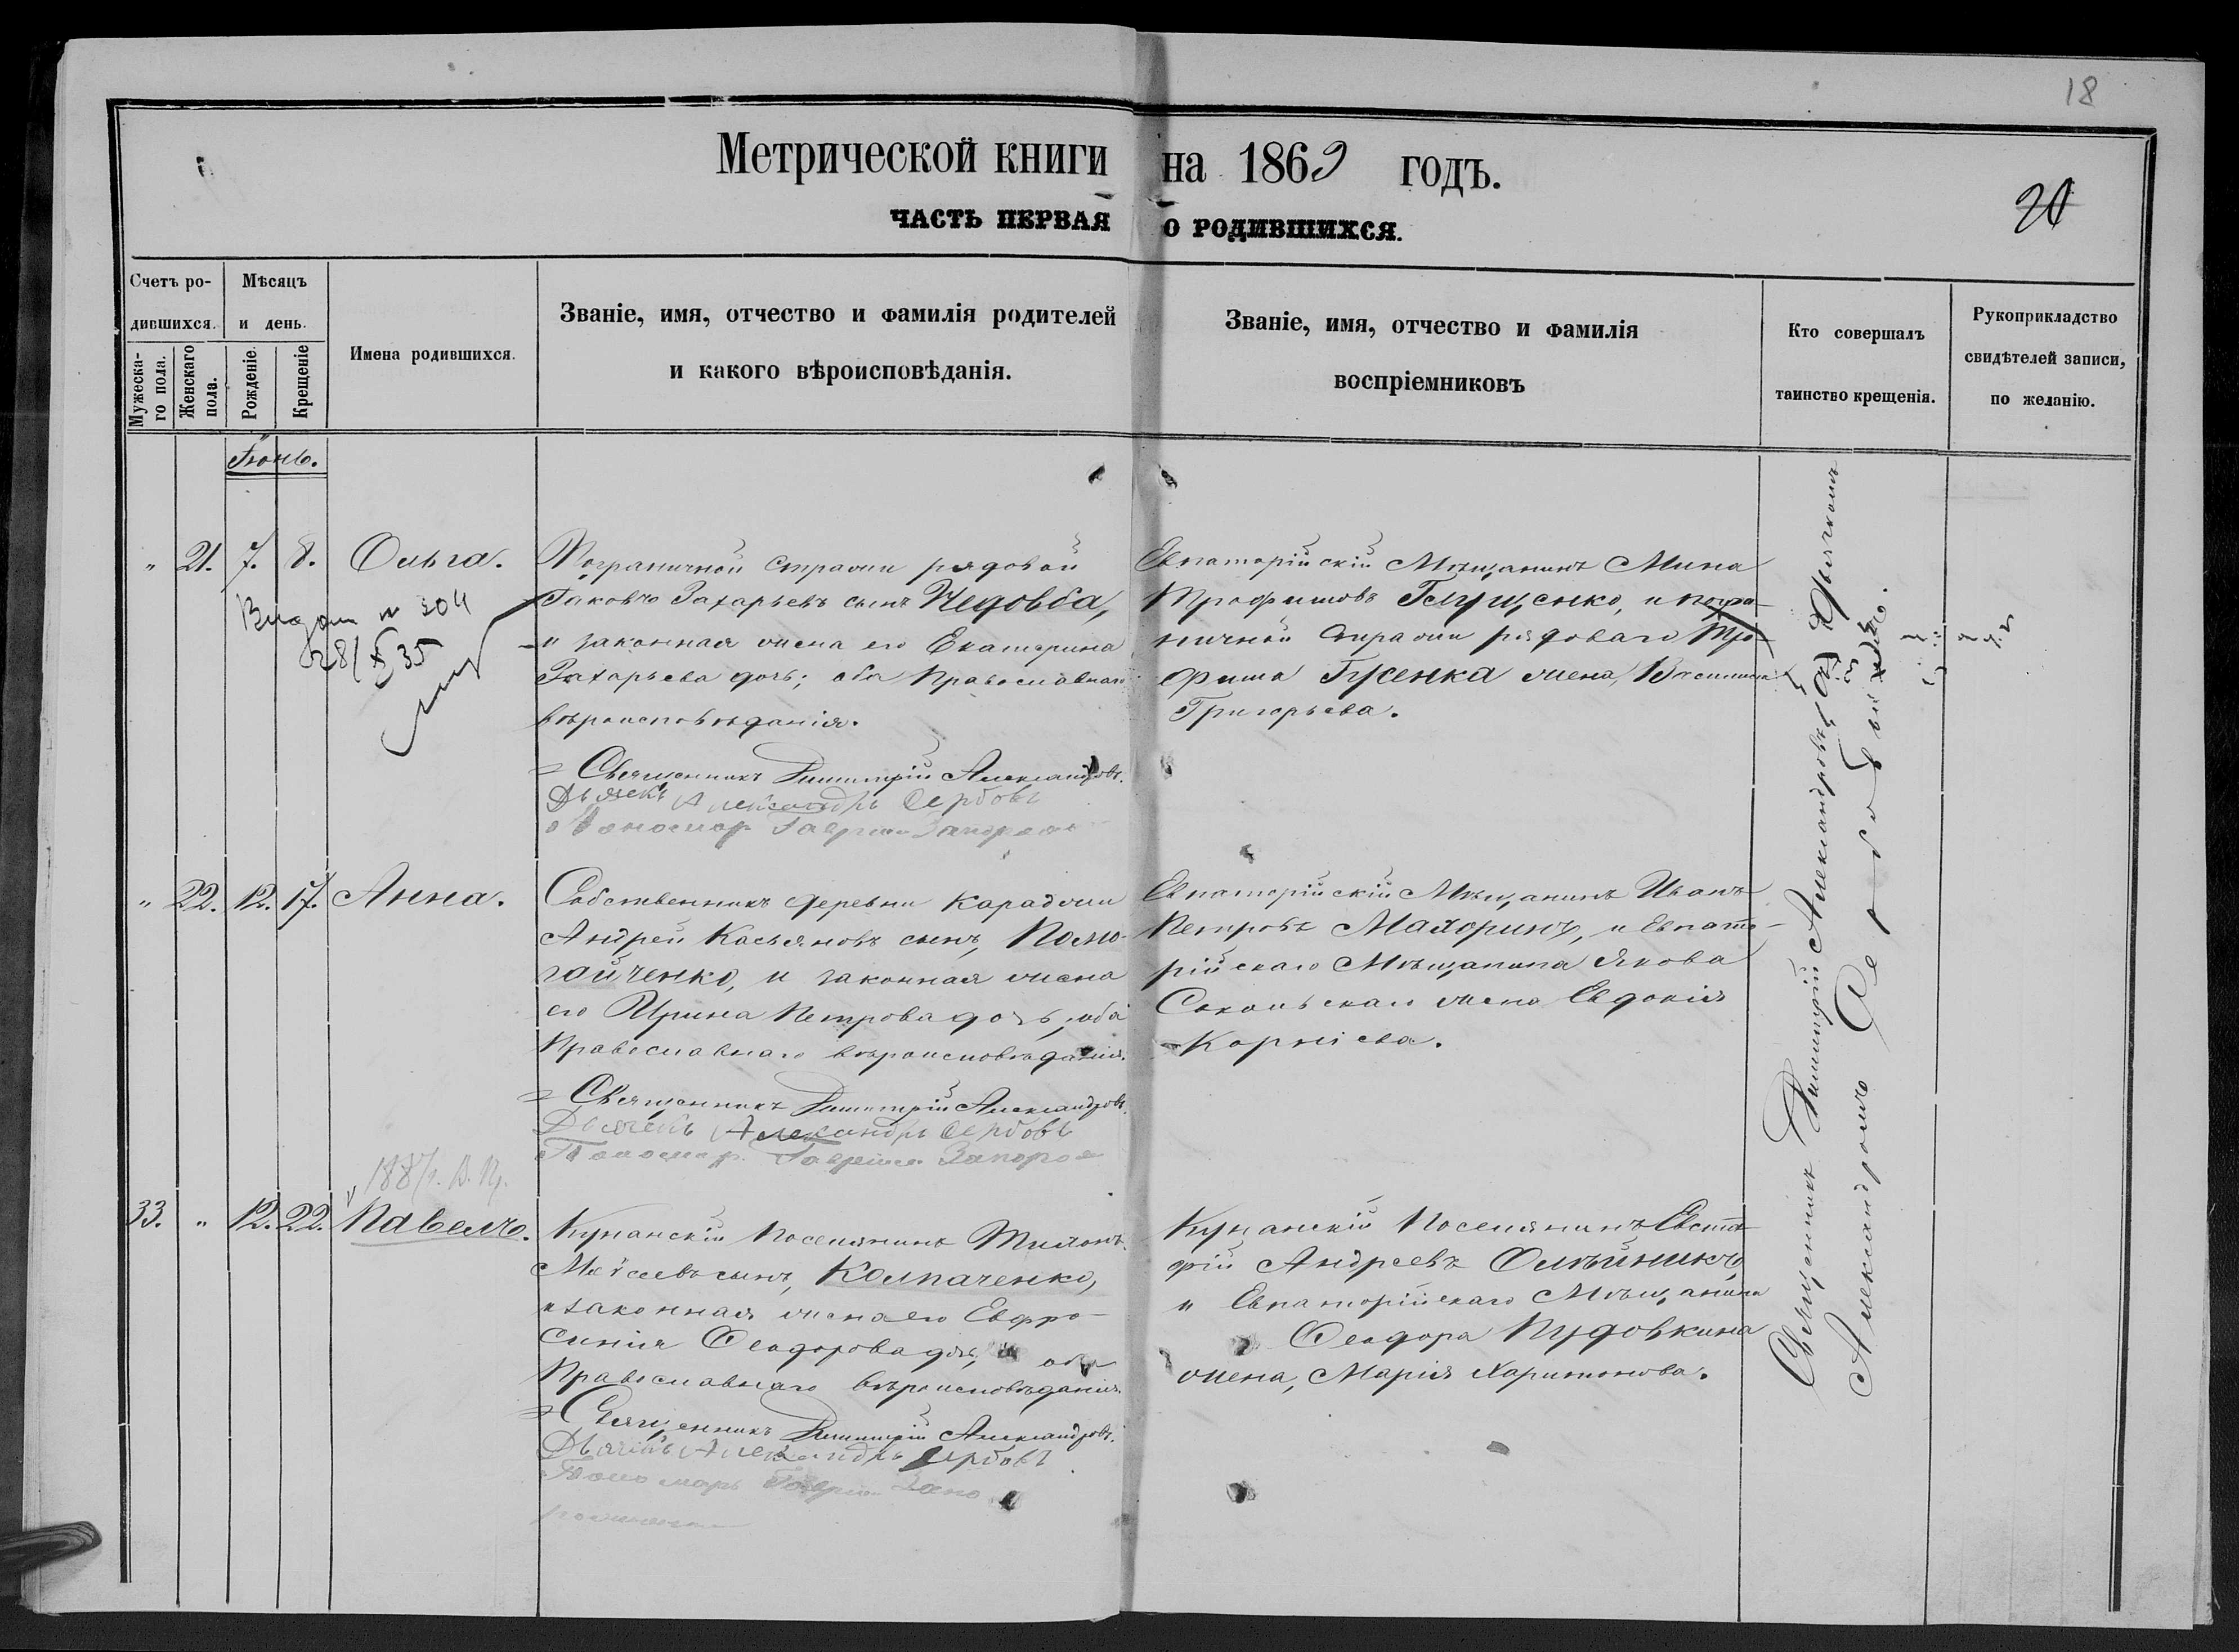 18
Метрической книги на 1869 годъ.
ЧАСТЬ ПЕРВАЯ О РОДИВШИХСЯ.
Счетъ ро-
дившихся.
Мужеска-
го пола.
Женскаго
пола.
Мѣсяцъ
и день.
Рожденіе.
Крещеніе
Имена родившихся.
Званіе, имя, отчество и фамилія родителей
и какого вѣроисповѣданія.
Званіе, имя, отчество и фамилія
воспріемниковъ
Кто совершалъ
таинство крещенія.
Рукоприкладство
свидѣтелей записи,
по желанію.
Іюнь.
" 21. 7. 8. Ольга.
28/X 35
Пограничной Стражи рядовой
Іаковъ Захарьевъ сынъ Чедовба,
и законная жена его Екатерина
Захарьева дочь; оба Православнаго
вѣроисповѣданія.
Священникъ Димитрій Александровъ.
Дьячекъ Александръ Сербовъ
Пономар Гавріил
Евпаторійскій Мѣщанинъ Мина
Трофимовъ Глущенко, и погра-
ничной Стражи рядоваго Тро-
фима Гусенка жена, Василиса
Григорьева.
" 22. 12. 17. Анна.
Собственникъ деревни Караджи
Андрей Касьяновъ сынъ, Помо-
гайченко, и законная жена
его Ирина Петрова дочь, оба
Православнаго вѣроисповѣданія.
Священникъ Димитрій Александровъ.
Дьячекъ Александръ Сербовъ
Пономар Гавріил
Евпаторійскій Мѣщанинъ Иванъ
Петровъ Махоринъ, и Евпато-
рійскаго Мѣщанина Якова
Сокольскаго жена Евдокія
Корніева.
33. " 12. 22. Павелъ.
Кунанскій Поселянинъ Тихонъ
Моѵсеевъ сынъ, Колпаченко,
и законная жена его Евфро-
синія Ѳеодорова дочь, оба
Православнаго вѣроисповѣданія.
Священникъ Димитрій Александровъ.
Дьячекъ Александръ Сербовъ
Пономарь Гавріил
Кунанскій Поселянинъ Евста-
фій Андреевъ Олѣйникъ,
и Евпаторійскаго Мѣщанина
Ѳеодора Пудовкина
жена, Марія Харитонова.
Священникъ Димитрій Александровъ съ Дьячкомъ
Александромъ Сербовымъ.